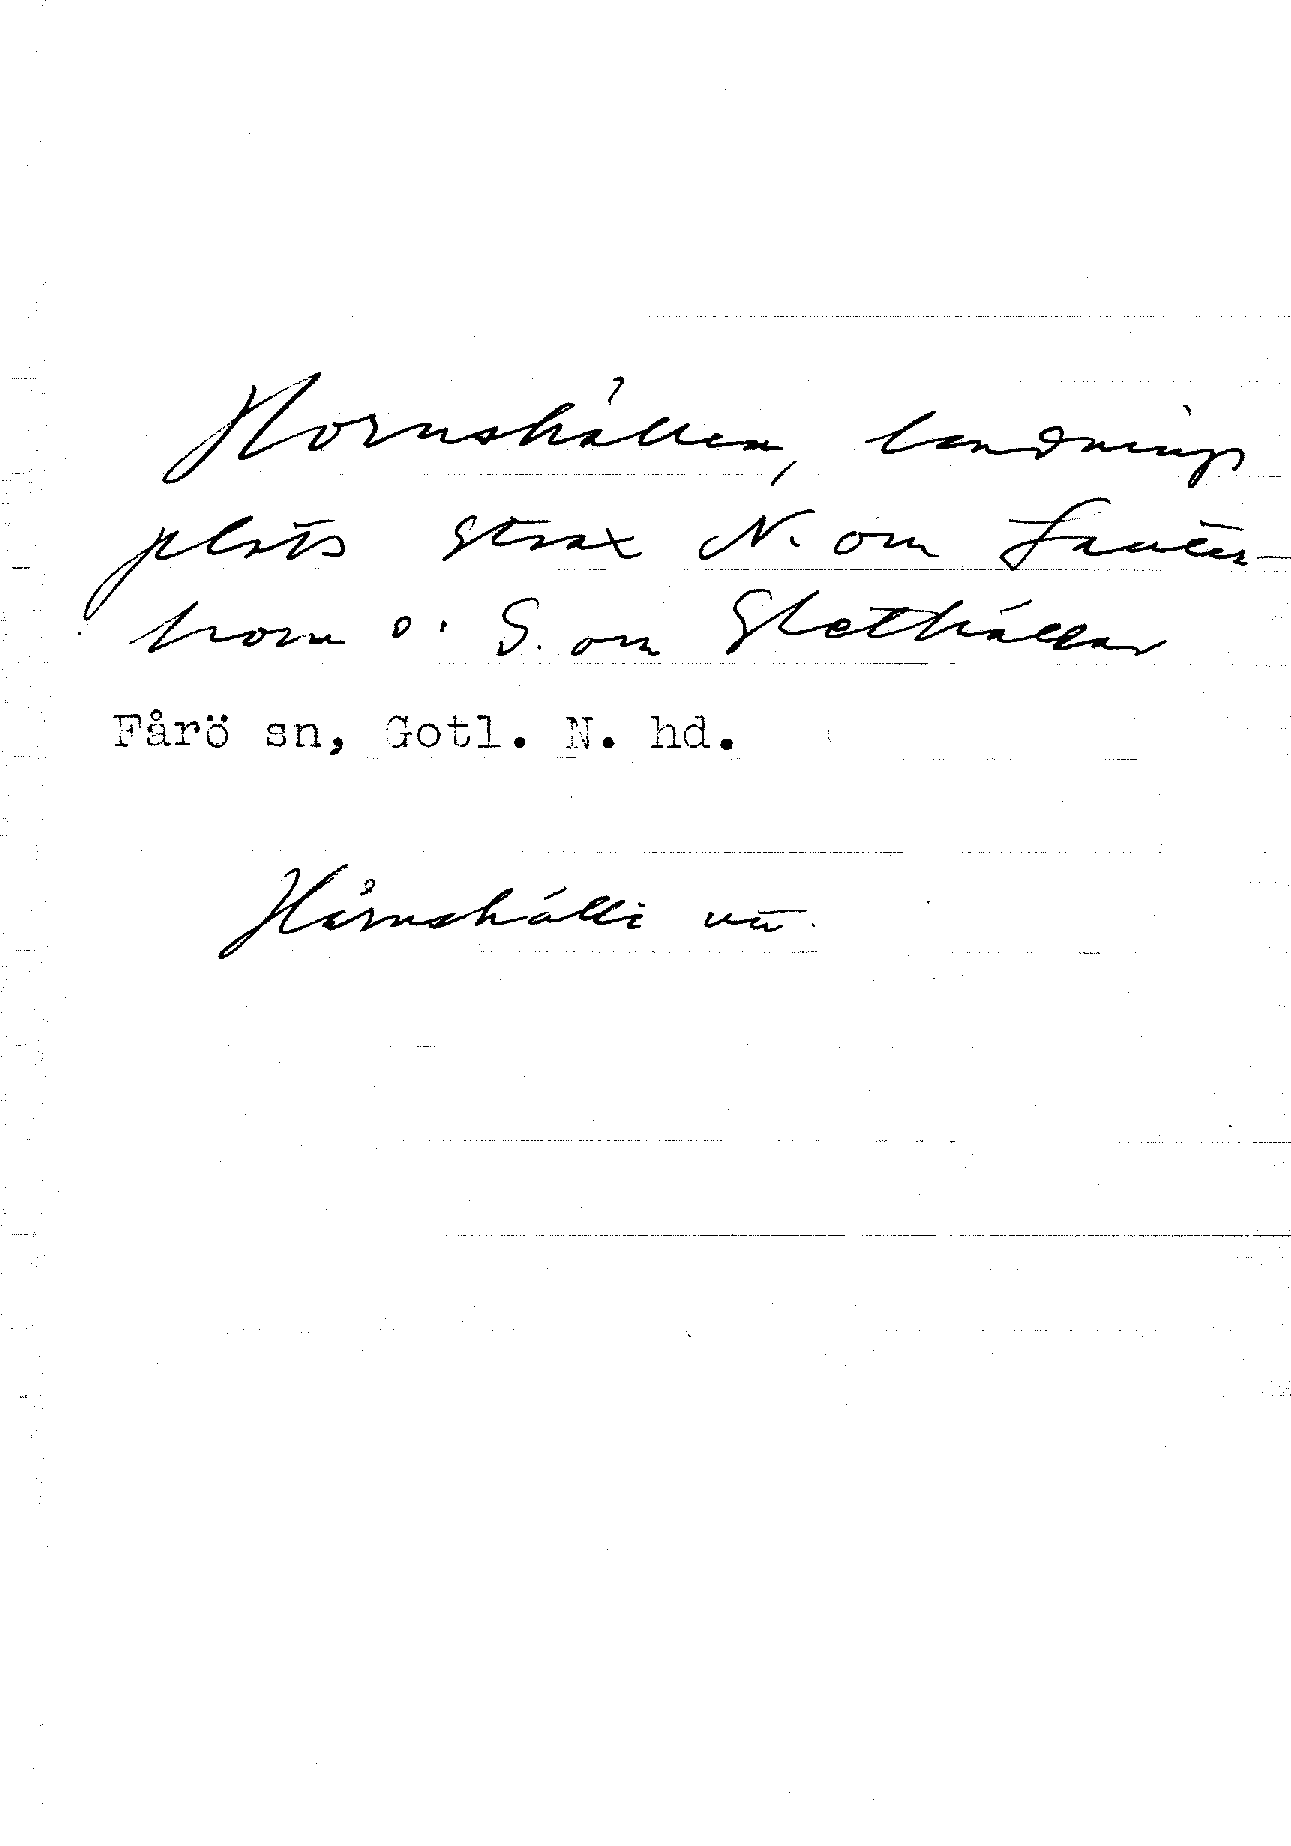 Hornshällen, landnings
plats strax N. om Lauter-
horn o. S. om Slethällar
Fårö sn, Gotl. N. hd.
Hårnshälli